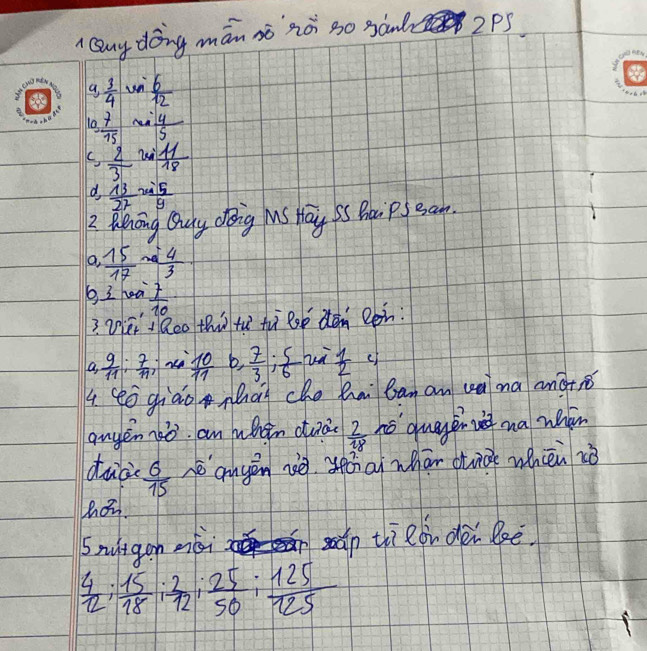 1 Quy đồng mẫn số rồi so sánh 2 PS
a, 3/4 và 6/12
b, 7/15 và 4/5
c, 2/3 và 11/18
d, 13/27 và 5/9
2 không Quy đồng MS Hãy SS hai PS sau.
a, 15/17 và 4/3
b, 3 và 7/10
3. viết theo thứ tự từ bé đến lớn:
a, 9/11; 7/11; và 10/11 b, 7/3; 5/6 và 1/2 c,
4. cô giáo phát cho hai bạn an và na một số
quyển vở. an nhận được 2/18 số quyển vở na nhận
được 6/15 số quyển vở. Hỏi ai nhận được nhiều vở
hơn.
5 rút gọn rồi sắp từ lớn đến bé.
4/12; 15/18; 2/12; 25/50; 125/125